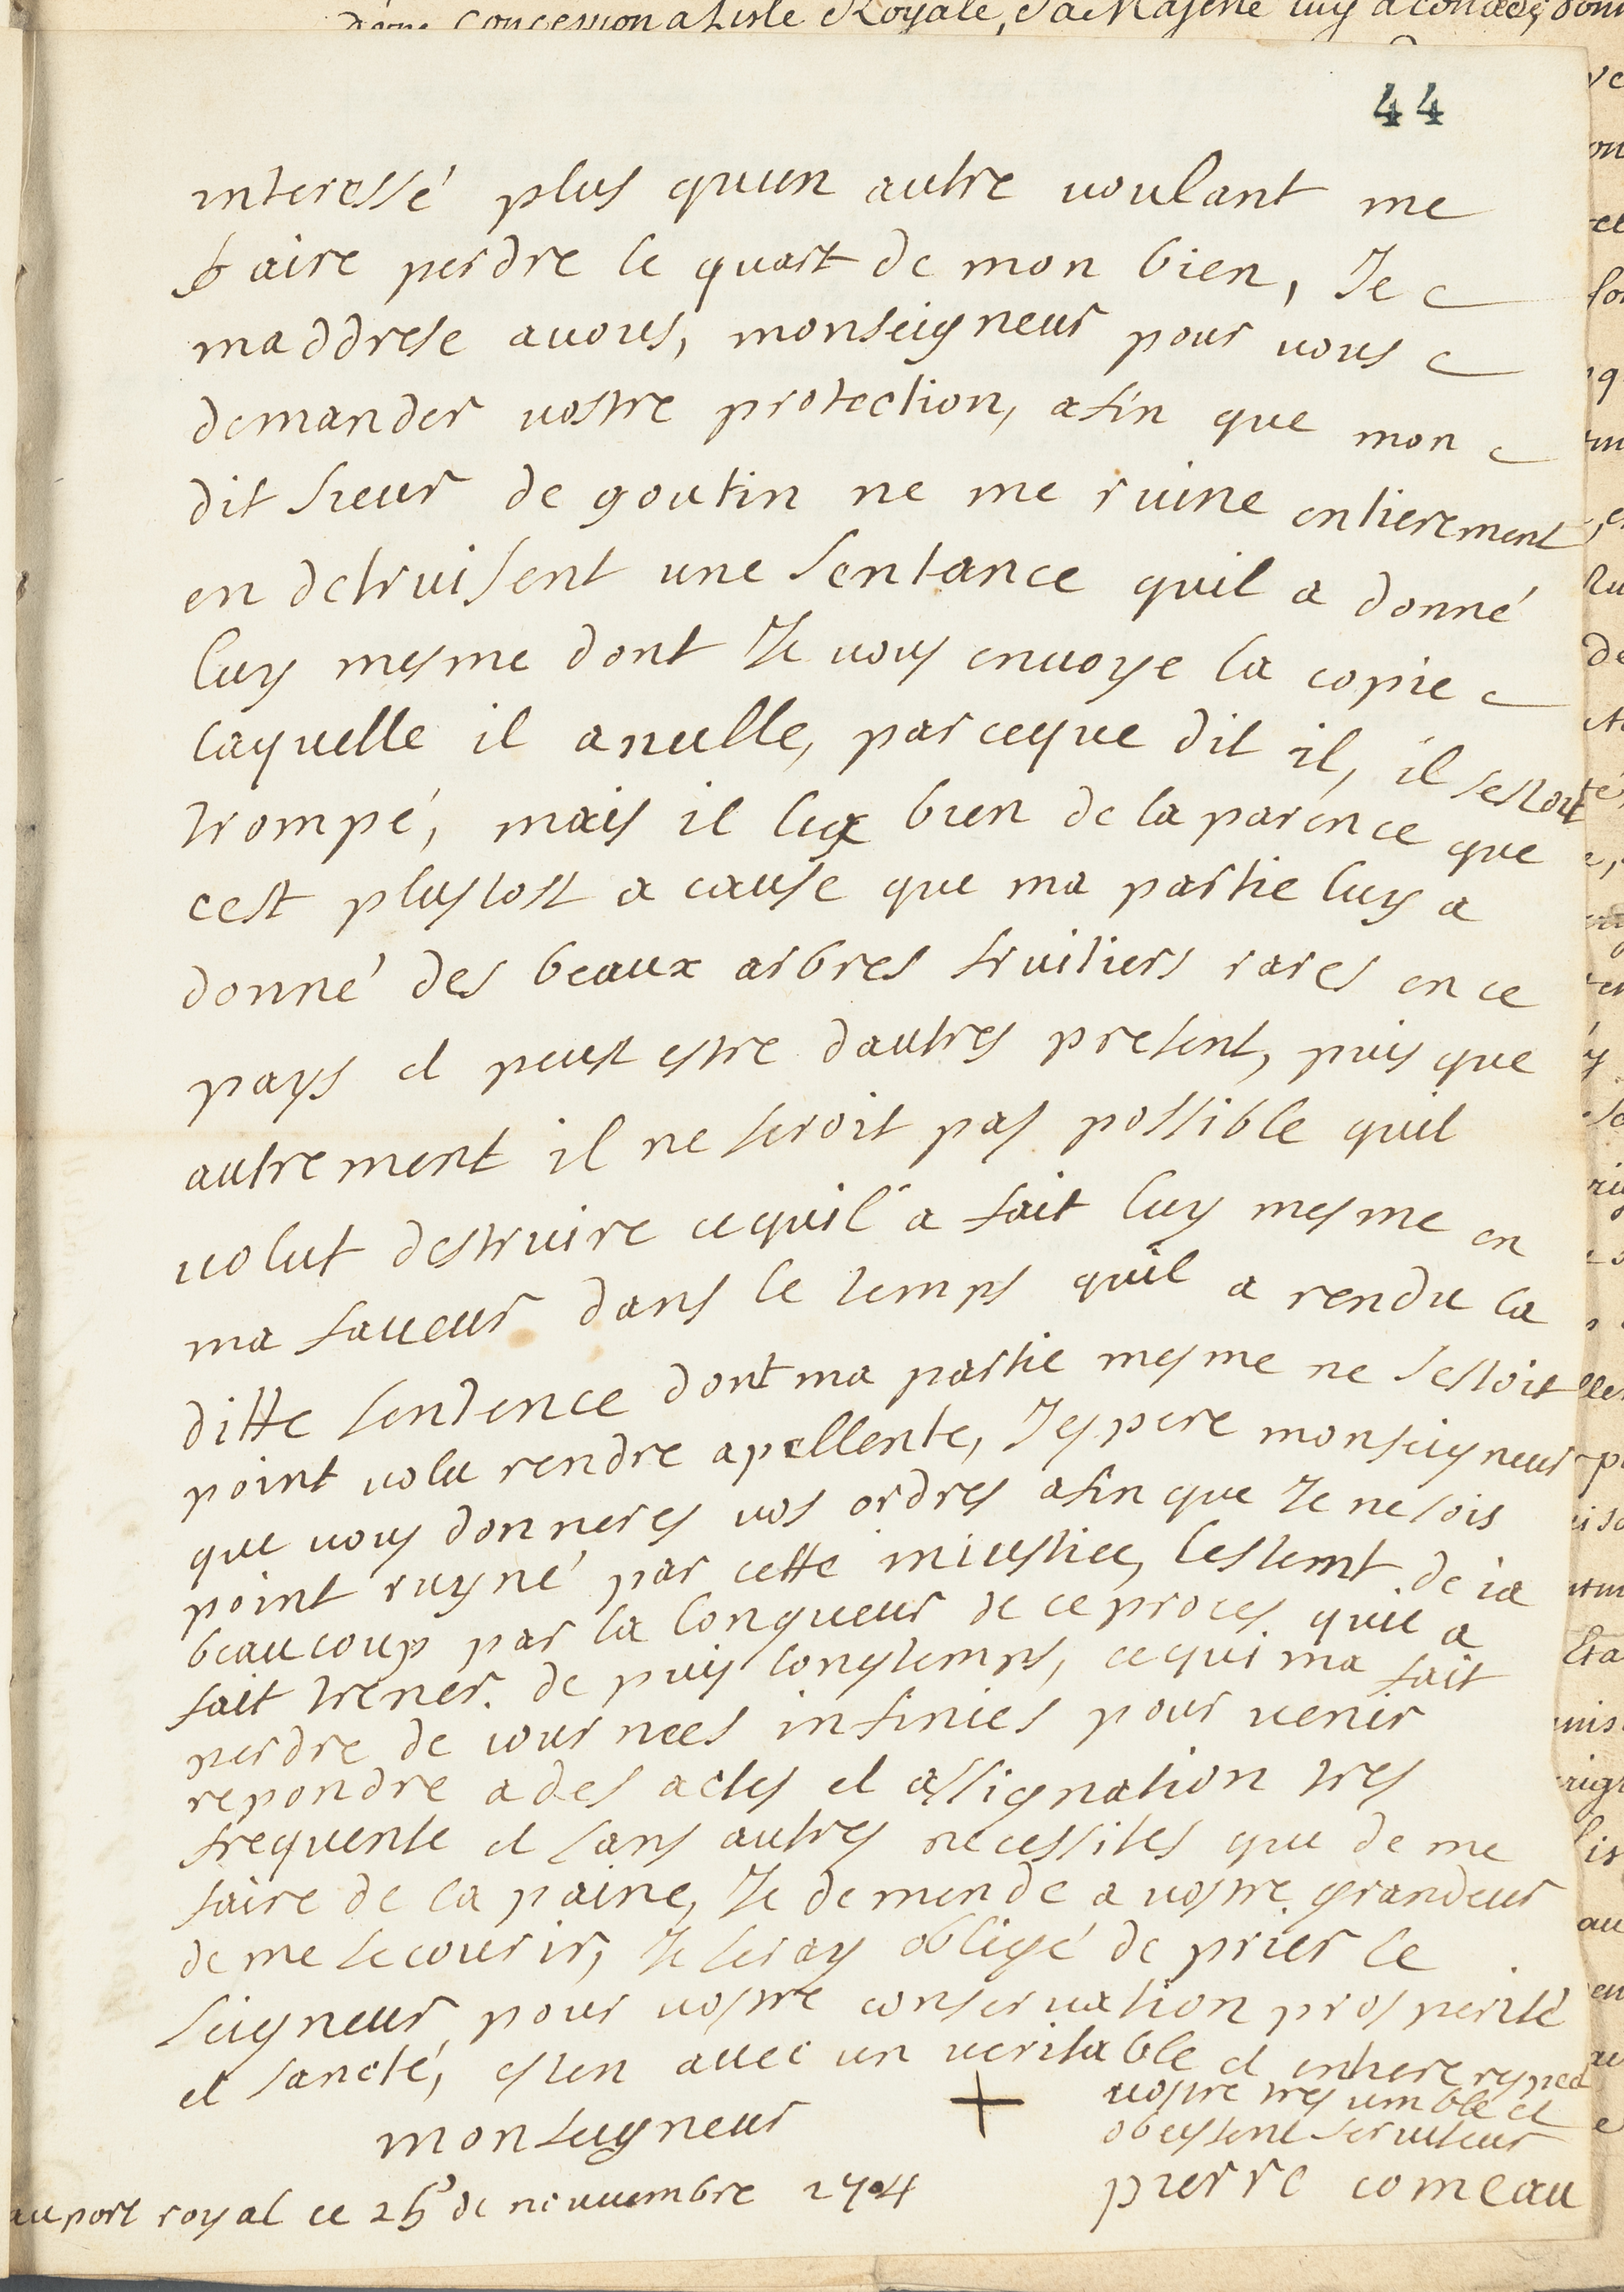 44
interessé plus quun autre uoulant me
faire perdre le quart de mon bien, Je
maddrese auous, monseigneur pour uous
demander vostre protection, afin que mon
dit sieur de goutin ne me ruine entierement
en detruisent une sentance quil a donné
luy mesme dont Je uous enuoye la copie
laquelle il anulle, parceque dit il, il sestoit
trompé, mais il luy bien de la parence que
cest plustost a cause que ma partie luy a
donné des beaux arbres fruitiers rares en ce
pays et peust estre dautres present, puis que
autrement il ne seroit pas possible quil
uolut destruire cequil a fait luy mesme en
ma faueur dans le temps quil a rendu la
ditte sentence dont ma partie mesme ne sestoit
point uolu rendre apellente, Jespere monseigneur
que uous donneres uos ordres afin que Je ne sois
point ruyné par cette iniustice, lestemt de ia
beaucoup par la longueur de ce proces quil a
fait trener de puis longtemps, cequi ma fait
perdre de iournees infinies pour uenir
repondre a des actes et assignation tres
frequente et sans autres necessites que de me
faire de la paine, Je demende a uostre grandeur
de me secourir, Je seray obligé de prier le
seigneur pour uostre conseruation prosperité
et sancté, esten auec un ueritable et entiere respect
monseigneur
uostre tres umble et
obeyssent seruiteur
pierre comeau
au port royal ce 25e de nouuembre 1704